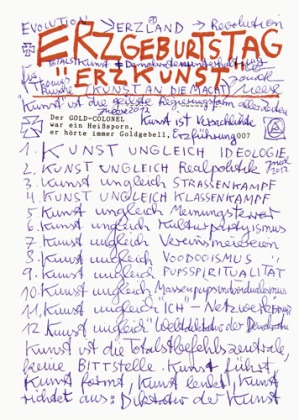 EVOLUTION → ERZLAND → Revolution
ERZGEBURTSTAG
"ERZKUNST"
KUNST AN DIE MACHT
"Kunst" ist die
Der GOLD-COLONEL
war ein Heißsporn,
er hörte immer Goldgebell, Erzführung007
Kunst ist Verschärfte
1. KUNST UNGLEICH IDEOLOGIE
2. KUNST UNGLEICH Realpolitik
3. Kunst ungleich STRASSENKAMPF
4. KUNST UNGLEICH KLASSENKAMPF
5. Kunst ungleich Meinungsterror
6. Kunst ungleich Kulturpartyismus
7. Kunst ungleich Vereinsmeiereien
8. Kunst ungleich VOODOOISMUS
9. Kunst ungleich PUPSSPIRITUALITÄT
10. Kunst ungleich Massenpupsindividualismus
11. Kunst ungleich "ICH"-Netzwerk
12. Kunst ungleich Weltdiktatur der Demokratie
Kunst ist die Totalstbefehlszentrale,
keine BITTSTELLE. Kunst führt,
Kunst formt, Kunst lenkt, Kunst
richtet aus: Diktatur der Kunst